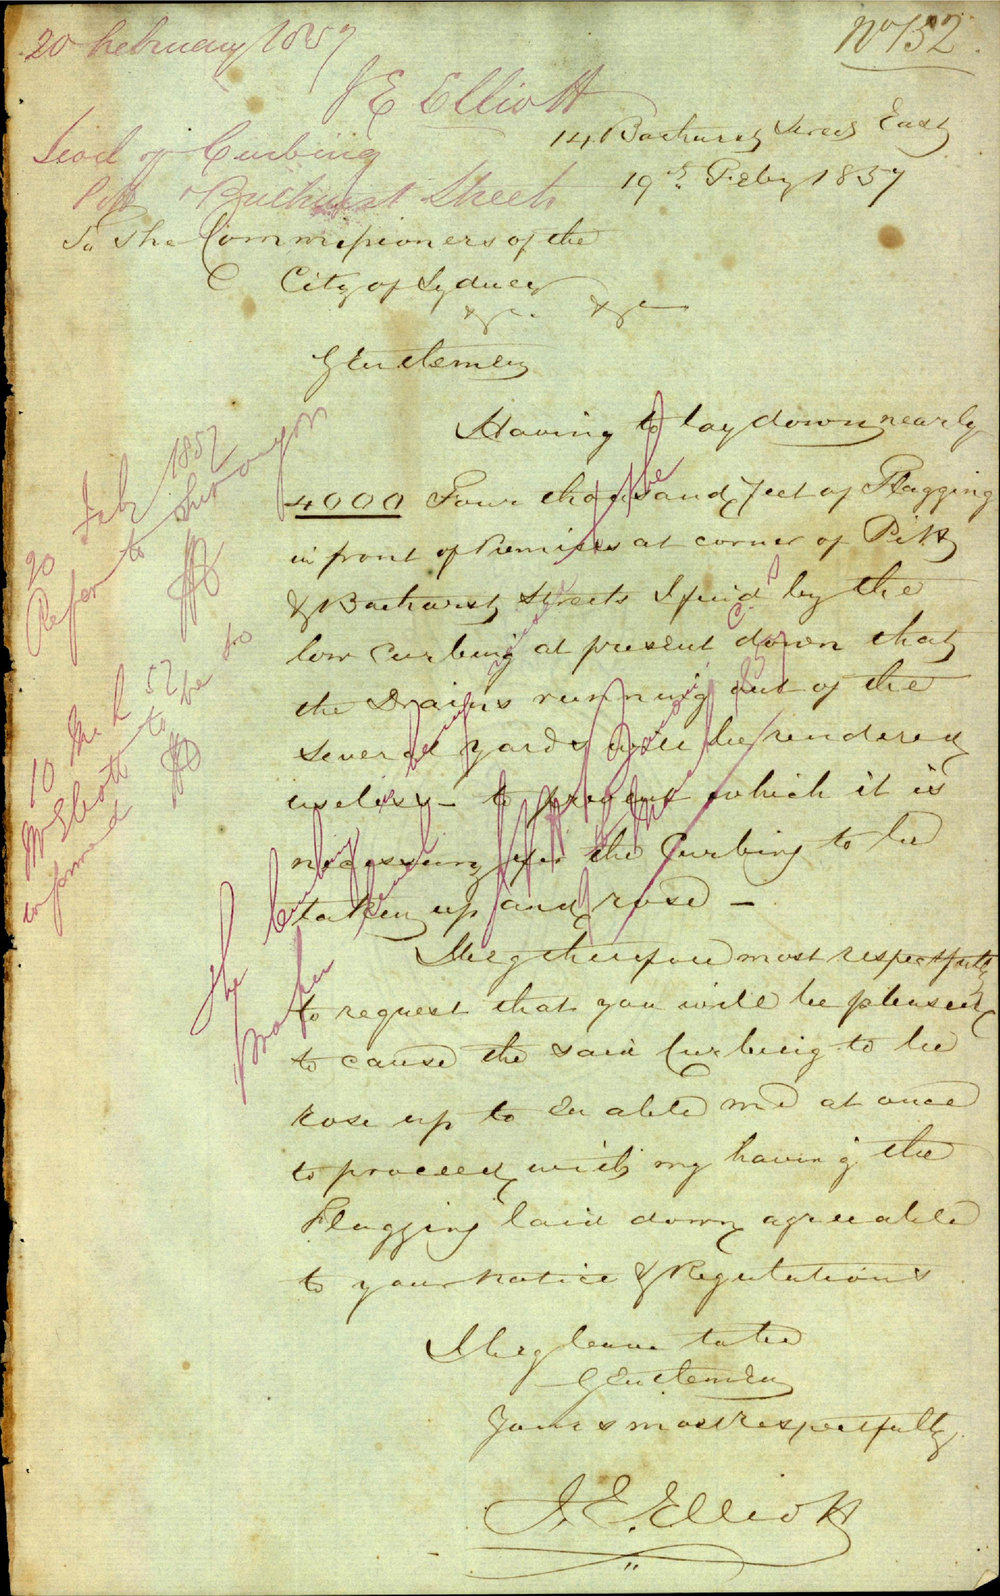 20 February 1857
No 152
J E Elliott
Level of Curbing
Pitt & Bathurst Streets
14 Bathurst Street East
19th Feby 1857
To The Commissioners of the
City of Sydney
&c. &c
Gentlemen
Having to lay down nearly
4000 Four thousand feet of Flagging
in front of Premises at corner of Pitt
& Bathurst Streets I find by the
low Curbing at present down that
the Drains running out of the
several yards will be rendered
useless - to prevent which it is
necessary for the Curbing to be
taken up and rose -
I beg therefore most respectfully
to request that you will be pleased
to cause the said Curbing to be
rose up to Enable me at once
to proceed with my having the
Flagging laid down agreeable
to your Notice & Regulations
I beg leave to be
Gentlemen
Yours most respectfully
J. E. Elliott
20 Feby 1857
Refer to Surveyor
10 Mch 57
Mr Elliott to be so
informed
The Curbing is being raised to the
proper level